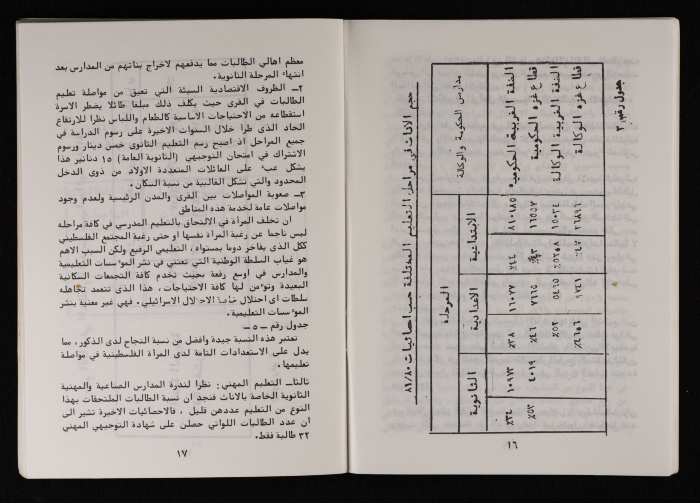 جدول رقم ٢
حجم الاناث في مراحل التعليم المختلفة حسب احصائيات ٨١/٨٠
مدارس الحكومة والوكالة
المرحلة
الابتدائية
الاعدادية
الثانوية
الضفة الغربية الحكومية
٪٤٤
١٦٠٧٧
٪٣٨
١٠٩٧٣
٪٣٤
قطاع غزه الحكومية
١٦٥٥٧
٧٦٦٥
٪٤٦
٤٠١٩
٪٥٣
الضفة الغربية الوكالة
١٥٠٣٤
٥٤٦٥
٪٥٢
قطاع غزه الوكالة
٢٦٨٩٦
٪٤٧
٩٧٤١
١٦
معظم اهالي الطالبات مما يدفعهم لاخراج بناتهم من المدارس بعد
انتهاء المرحلة الثانوية.
٢ــ الظروف الاقتصادية السيئة التي تعيق من مواصلة تعليم
الطالبات في القرى حيث يكلف ذلك مبلغا طائلا يضطر الاسرة
استقطاعه من الاحتياجات الاساسية كالطعام واللباس نظرا للارتفاع
الحاد الذي طرأ خلال السنوات الاخيرة على رسوم الدراسة في
جميع المراحل اذ اصبح رسم التعليم الثانوي خمس دينار ورسوم
الاشتراك في امتحان التوجيهي (الثانوية العامة) ١٥ دنانير هذا
يشكل عبء على العائلات المتعددة الاولاد من ذوي الدخل
المحدود والتي تشكل الغالبية من نسبة السكان.
٣ــ صعوبة المواصلات بين القرى والمدن الرئيسية ولعدم وجود
مواصلات عامة لخدمة هذه المناطق
ان تخلف المرأة في الالتحاق بالتعليم المدرسي في كافة مراحله
ليس ناجما عن رغبة المرأة نفسها او حتى رغبة المجتمع الفلسطيني
ككل الذي يفاخر دوما بمستواه ، التعليمي الرفيع ولكن السبب الاهم
هو غياب السلطة الوطنية التي تعتني في نشر المؤسسات التعليمية
والمدارس في اوسع رقعة بحيث تخدم كافة التجمعات السكانية
البعيدة وتؤمن لها كافة الاحتياجات ، هذا الذي تتعمد تجاهله
سلطات اي احتلال خاصة الاحتلال الاسرائيلي . فهي غير معنية بنشر
المؤسسات التعليمية.
جدول رقم ــ ٥ ــ
تعتبر هذه النسبة جيدة وافضل من نسبة النجاح لدى الذكور ، مما
يدل على الاستعدادات التامة لدى المرأة الفلسطينية في مواصلة
تعليمها .
ثالثا ــ التعليم المهني : نظرا لندرة المدارس الصناعية والمهنية
الثانوية الخاصة بالاناث فنجد ان نسبة الطالبات الملتحقات بهذا
النوع من التعليم عددهن قليل ، فالاحصائيات الاخيرة تشير الى
ان عدد الطالبات اللواتي حصلن على شهادة التوجيهي المهني
٣٢ طالبة فقط .
١٧